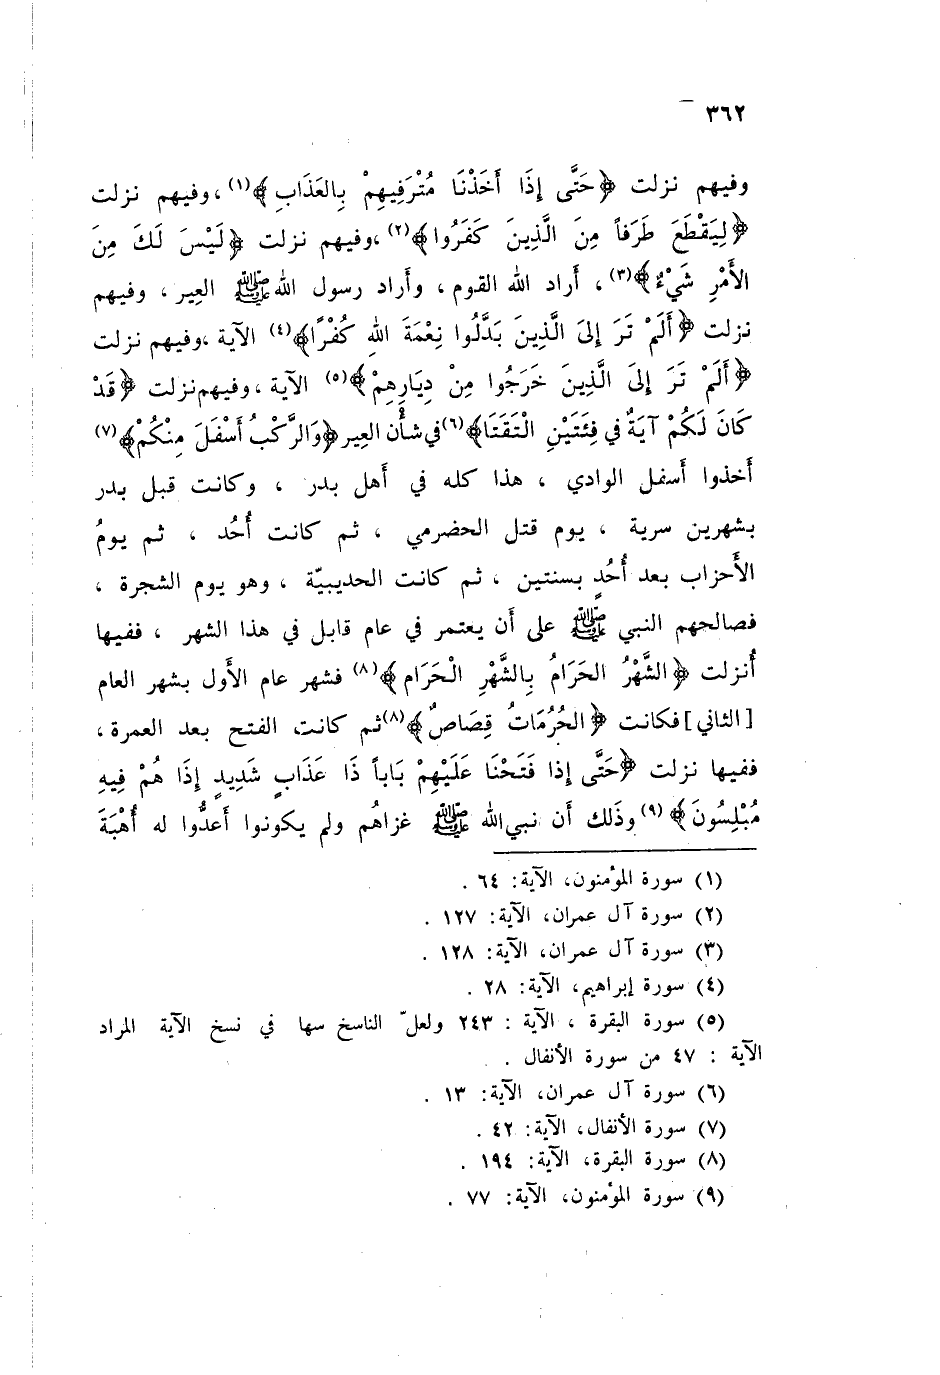 ٣٦٢
وفيهم نزلت ﴿حَتَّى إِذَا أَخَذْنَا مُتْرَفِيهِمْ بِالعَذَابِ﴾(١)، وفيهم نزلت
﴿لِيَقْطَعَ طَرَفاً مِنَ الَّذِينَ كَفَرُوا﴾(٢)، وفيهم نزلت ﴿لَيْسَ لَكَ مِنَ
الأَمْرِ شَيْءٌ﴾(٣)، أراد الله القوم، وأراد رسول اللهﷺ العِير، وفيهم
نزلت ﴿أَلَمْ تَرَ إِلَى الَّذِينَ بَدَّلُوا نِعْمَةَ اللهِ كُفْرًا﴾(٤) الآية، وفيهم نزلت
﴿أَلَمْ تَرَ إِلَى الَّذِينَ خَرَجُوا مِنْ دِيَارِهِمْ﴾(٥) الآية، وفيهم نزلت ﴿قَدْ
كَانَ لَكُمْ آيَةٌ في فِئَتَيْنِ الْتَقَتَا﴾(٦) في شأْن العِير ﴿وَالرَّكْبُ أَسْفَلَ مِنْكُمْ﴾(٧)
أخذوا أسفل الوادي، هذا كله في أهل بدر، وكانت قبل بدر
بشهرين سرية، يوم قتل الحضرمي، ثم كانت أُحُد، ثم يومُ
الأَحزاب بعد أُحُدٍ بسنتين، ثم كانت الحديبيّة، وهو يوم الشجرة،
فصالحهم النبي ﷺ على أَن يعتمر في عام قابل في هذا الشهر، ففيها
أُنزلت ﴿الشَّهْرُ الحَرَامُ بِالشَّهْرِ الْحَرَام﴾(٨) فشهر عام الأَول بشهر العام
[الثاني] فكانت ﴿الحُرُمَاتُ قِصَاصٌ﴾(٨) ثم كانت الفتح بعد العمرة،
ففيها نزلت ﴿حَتَّى إِذا فَتَحْنَا عَلَيْهِمْ بَاباً ذَا عَذَابٍ شَدِيدٍ إِذَا هُمْ فِيهِ
مُبْلِسُونَ﴾(٩) وذَلك أن نبي الله ﷺ غزاهُم ولم يكونوا أعدُّوا له أُهْبَةَ
(١) سورة المؤمنون، الآية: ٦٤.
(٢) سورة آل عمران، الآية: ١٢٧.
(٣) سورة آل عمران، الآية: ١٢٨.
(٤) سورة إبراهيم، الآية: ٢٨.
(٥) سورة البقرة، الآية: ٢٤٣ ولعلّ الناسخ سها في نسخ الآية المراد
الآية: ٤٧ من سورة الأنفال.
(٦) سورة آل عمران، الآية: ١٣.
(٧) سورة الأنفال، الآية: ٤٢.
(٨) سورة البقرة، الآية: ١٩٤.
(٩) سورة المؤمنون، الآية: ٧٧.